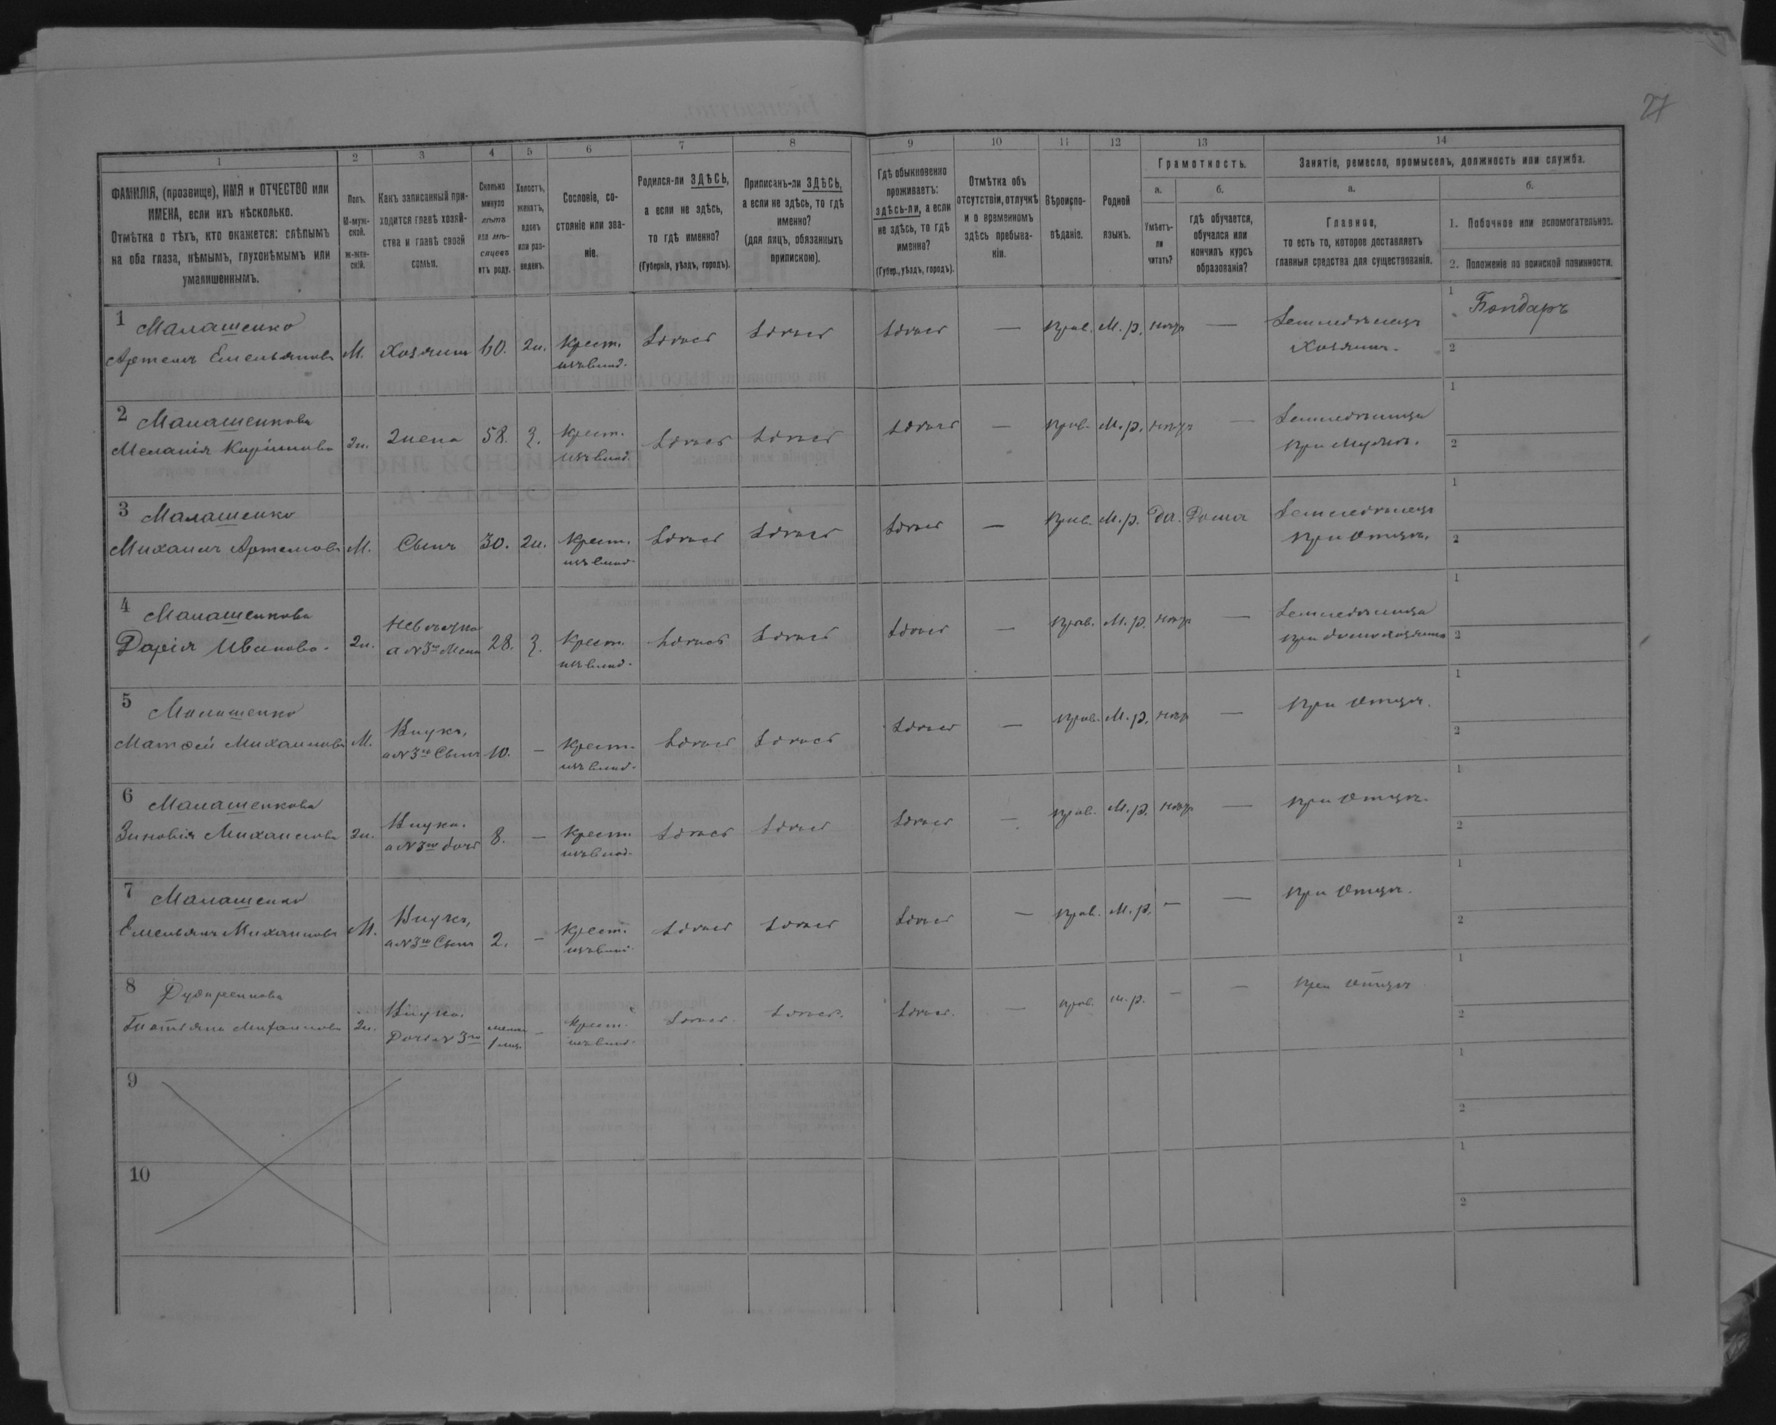 27
1 2 3 4 5 6 7 8 9 10 11 12 13 14
ФАМИЛІЯ, (прозвище), ИМЯ и ОТЧЕСТВО или
ИМЕНА, если ихъ нѣсколько.
Отмѣтка о тѣхъ, кто окажется: слѣпымъ
на оба глаза, нѣмымъ, глухонѣмымъ или
умалишеннымъ.
Полъ.
М-муж-
ской.
ж-жен-
скій.
Какъ записанный при-
ходится главѣ хозяй-
ства и главѣ своей
семьи.
Сколько
минуло
лѣтъ
или мѣ-
сяцевъ
отъ роду.
Холостъ,
женатъ,
вдовъ
или раз-
веденъ.
Сословіе, со-
стояніе или зва-
ніе.
Родился-ли ЗДѢСЬ,
а если не здѣсь,
то гдѣ именно?
(Губернія, уѣздъ, городъ).
Приписанъ-ли ЗДѢСЬ,
а если не здѣсь, то гдѣ
именно?
(для лицъ, обязанныхъ
припискою).
Гдѣ обыкновенно
проживаетъ:
здѣсь-ли, а если
не здѣсь, то гдѣ
именно?
(Губер., уѣздъ, городъ).
Отмѣтка объ
отсутствіи, отлучкѣ
и о временномъ
здѣсь пребыва-
ніи.
Вѣроиспо-
вѣданіе.
Родной
языкъ.
Грамотность.
а.
Умѣетъ-
ли
читать?
б.
гдѣ обучается,
обучался или
кончилъ курсъ
образованія?
Занятіе, ремесло, промыселъ, должность или служба.
а.
Главное,
то есть то, которое доставляетъ
главныя средства для существованія.
б.
1. Побочное или вспомогательное.
2. Положеніе по воинской повинности.
1 Малашенко
Артемъ Емельяновъ М. Хозяинъ 60. ж. Крест. Здѣсь Здѣсь Здѣсь — прав. М. р. —
Хозяинъ.
1 Бондарь
2
2 Малашенкова
Меланія ж. Жена 58. З. Крест. Здѣсь Здѣсь Здѣсь — прав. М. р. —
при Мужѣ.
1
2
3 Малашенко
Михаилъ Артемовъ М. Сынъ 30. ж. Крест. Здѣсь Здѣсь Здѣсь — прав. М. р. Да. Дома
при Отцѣ.
1
2
4 Малашенкова
Дарія Иванова. ж. Невѣстка
а № 3го Жена 28. З. Крест. Здѣсь Здѣсь Здѣсь — прав. М. р. —
1
2
5 Малашенко
Матфей Михаиловъ М. Внукъ,
а № 3го Сынъ 10. — Крест. Здѣсь Здѣсь Здѣсь — прав. М. р. — при Отцѣ.
1
2
6 Малашенкова
Зиновія Михаилова ж. Внука.
а № 3го дочь 8. — Крест. Здѣсь Здѣсь Здѣсь — прав. М. р. — при Отцѣ.
1
2
7 Малашенко
Емельянъ Михаиловъ М. Внукъ,
а № 3го Сынъ 2. — Крест. Здѣсь Здѣсь Здѣсь — прав. М. р. — — при Отцѣ.
1
2
8
Татіяна Михаилова ж. Внука.
Дочь № 3го — Крест. Здѣсь Здѣсь. Здѣсь. — прав. м. р. — — при отцѣ
1
2
9
1
2
10
1
2